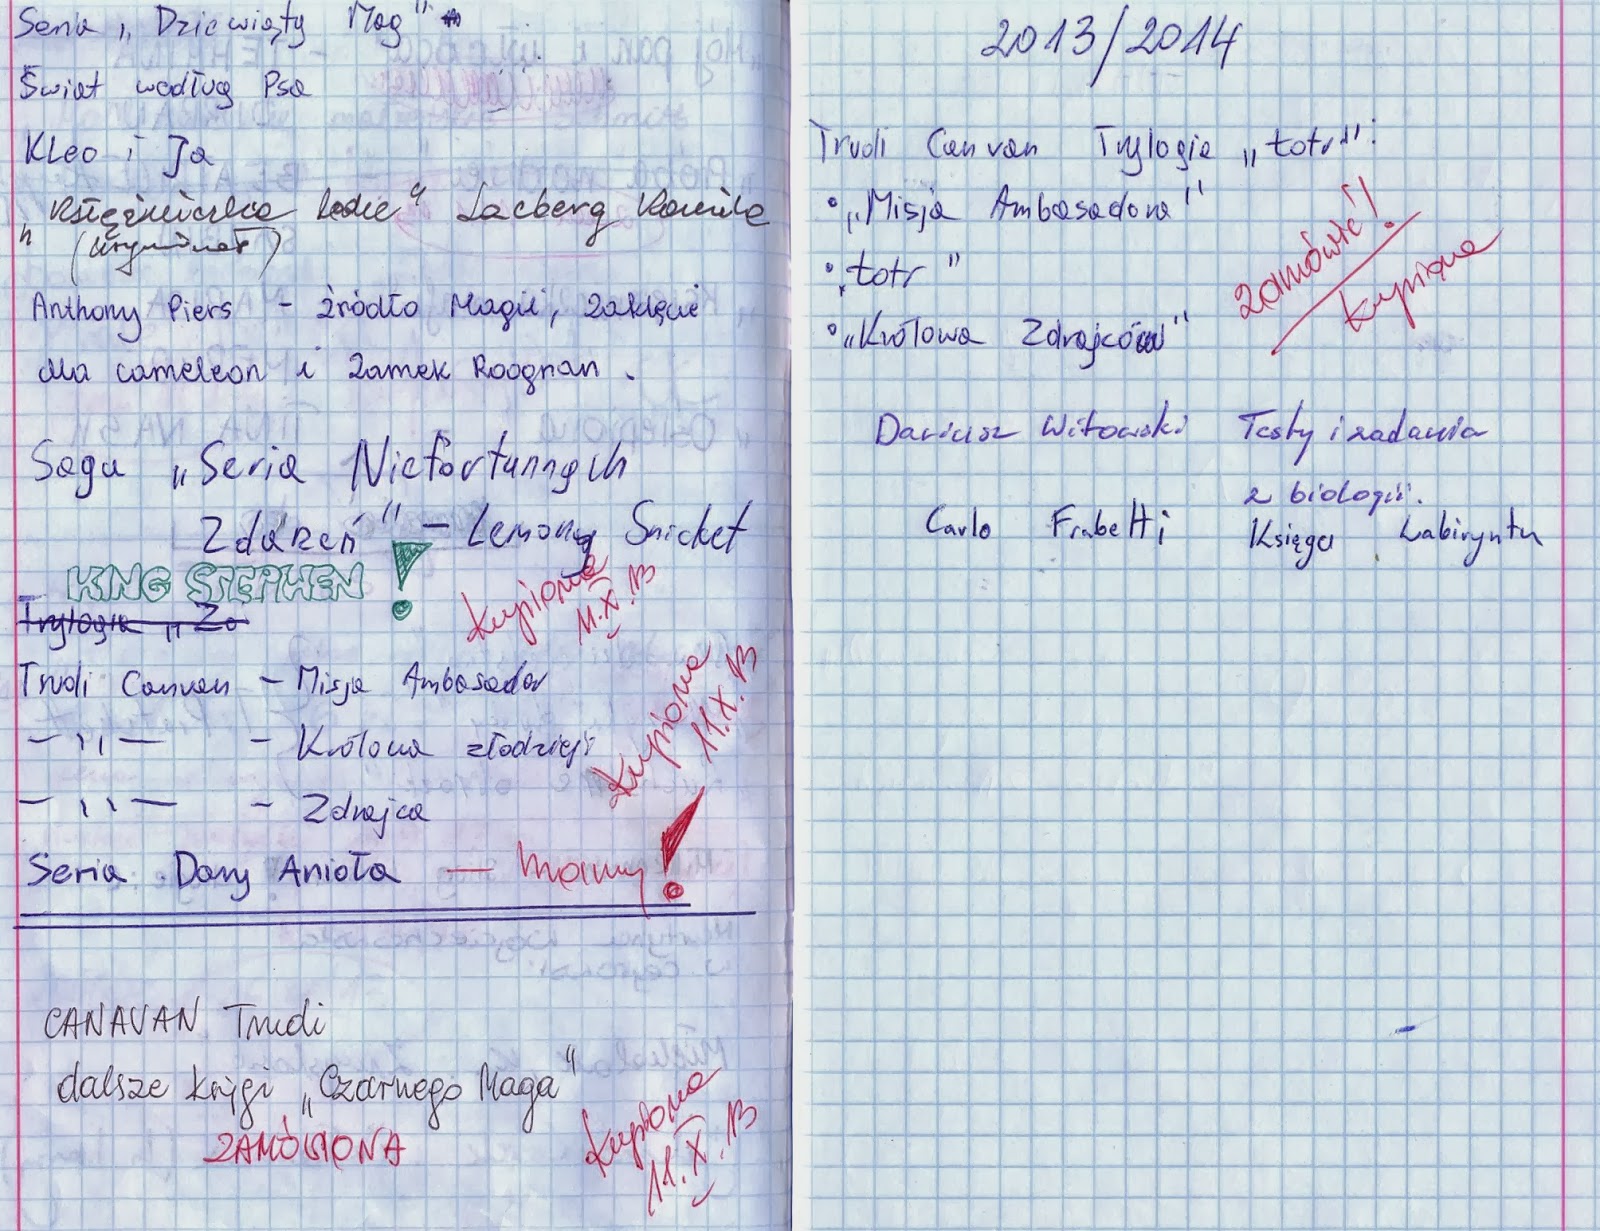 Seria „Dziewiąty Mag"
Świat według Psa
Kleo i Ja
„Księżniczka z lodu" Lacberg Kamila
(kryminał)
Anthony Piers - źródło Magii, zaklęcie
dla cameleon i Zamek Roognan.
Saga „Seria Niefortunnych
Zdarzeń" - Lemony Snicket
KING STEPHEN!
Kupiona
11.X.13
Trylogia „Zo
Trudi Canvan - Misja Ambasador
— " — - Królowa złodzieji
— " — - Zdrajca
Kupiona
11.X.13
Seria Dary Anioła — mamy!
CANAVAN Trudi
dalsze księgi „Czarnego Maga"
ZAMÓWIONA
Kupiona
11.X.13
2013/2014
Trudi Canvan Trylogia „totr":
• „Misja Ambasadora"
• „totr"
• „Królowa Zdrajców"
Zamówić!
Kupiona
Dariusz Witowski Testy i zadania
z biologii.
Carlo Frabetti Księga Labiryntu